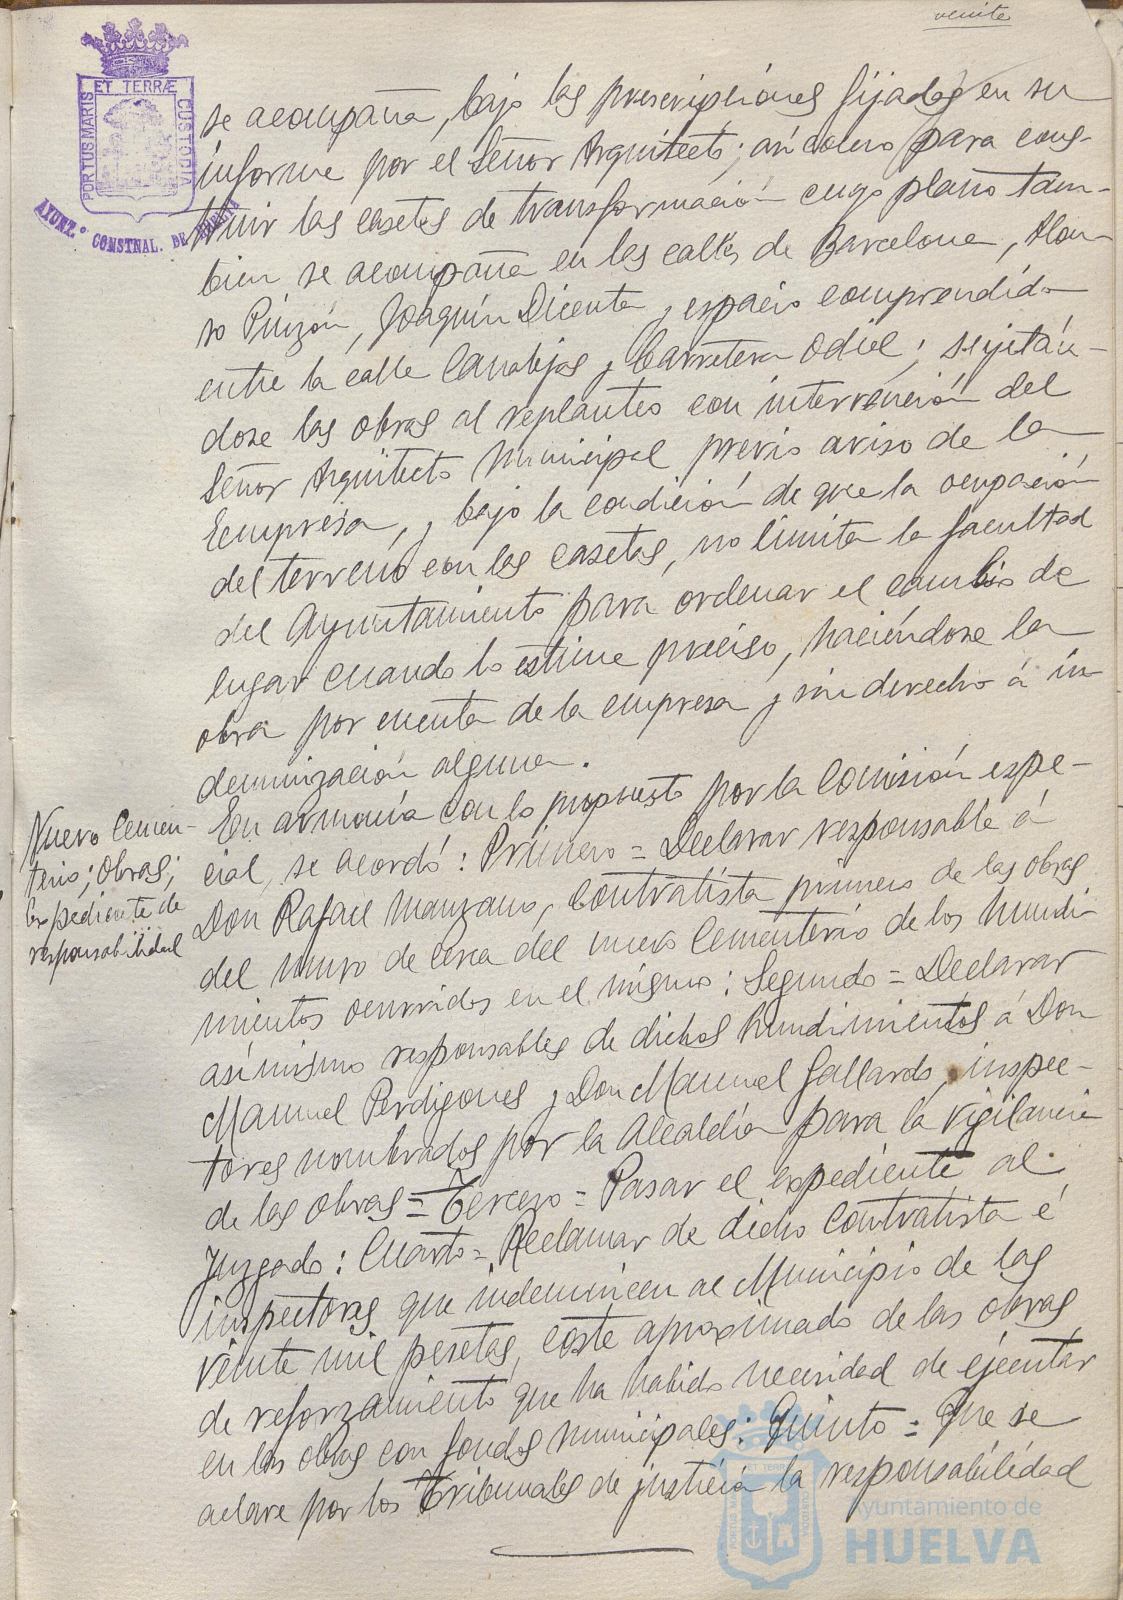 veinte
PORTUS MARIS ET TERRÆ CUSTODIA
AYUNT.º CONSTNAL. DE HUELVA
se acompaña, bajo las prescripciones fijadas en su
informe por el Señor Arquitecto; así como para cons-
truir las casetas de transformación cuyo plano tam-
bien se acompaña en las calles de Barcelona, Alon-
so Pinzón, Joaquín Dicenta y espacio comprendido
entre la calle Canalejas y Carretera Odiel; sujetán-
dose las obras al replanteo con intervención del
Señor Arquitecto Municipal previo aviso de la
Empresa, y bajo la condición de que la ocupación
del terreno con las casetas, no limita la facultad
del Ayuntamiento para ordenar el cambio de
lugar cuando lo estime preciso, haciéndose la
obra por cuenta de la empresa y sin derecho á in
demnización alguna.
Nuevo Cemen-
terio; obras;
Expediente de
responsabilidad
En armonía con lo propuesto por la Comisión espe-
cial, se acordó: Primero = Declarar responsable á
Don Rafael Manzano, Contratista primero de las obras
del muro de cerca del nuevo Cementerio de los hundi
mientos ocurridos en el mismo: Segundo = Declarar
asímismo responsables de dichos hundimientos á Don
Manuel Perdigones y Don Manuel Gallardo, inspec-
tores nombrados por la Alcaldía para la vigilancia
de las obras = Tercero = Pasar el expediente al
Juzgado: Cuarto = Reclamar de dicho contratista é
inspectores que indemnicen al Municipio de las
veinte mil pesetas, coste aproximado de las obras
de reforzamiento que ha habido necesidad de ejecutar
en las obras con fondos municipales: Quinto = Que se
aclare por los Tribunales de justicia la responsabilidad
Ayuntamiento de
HUELVA